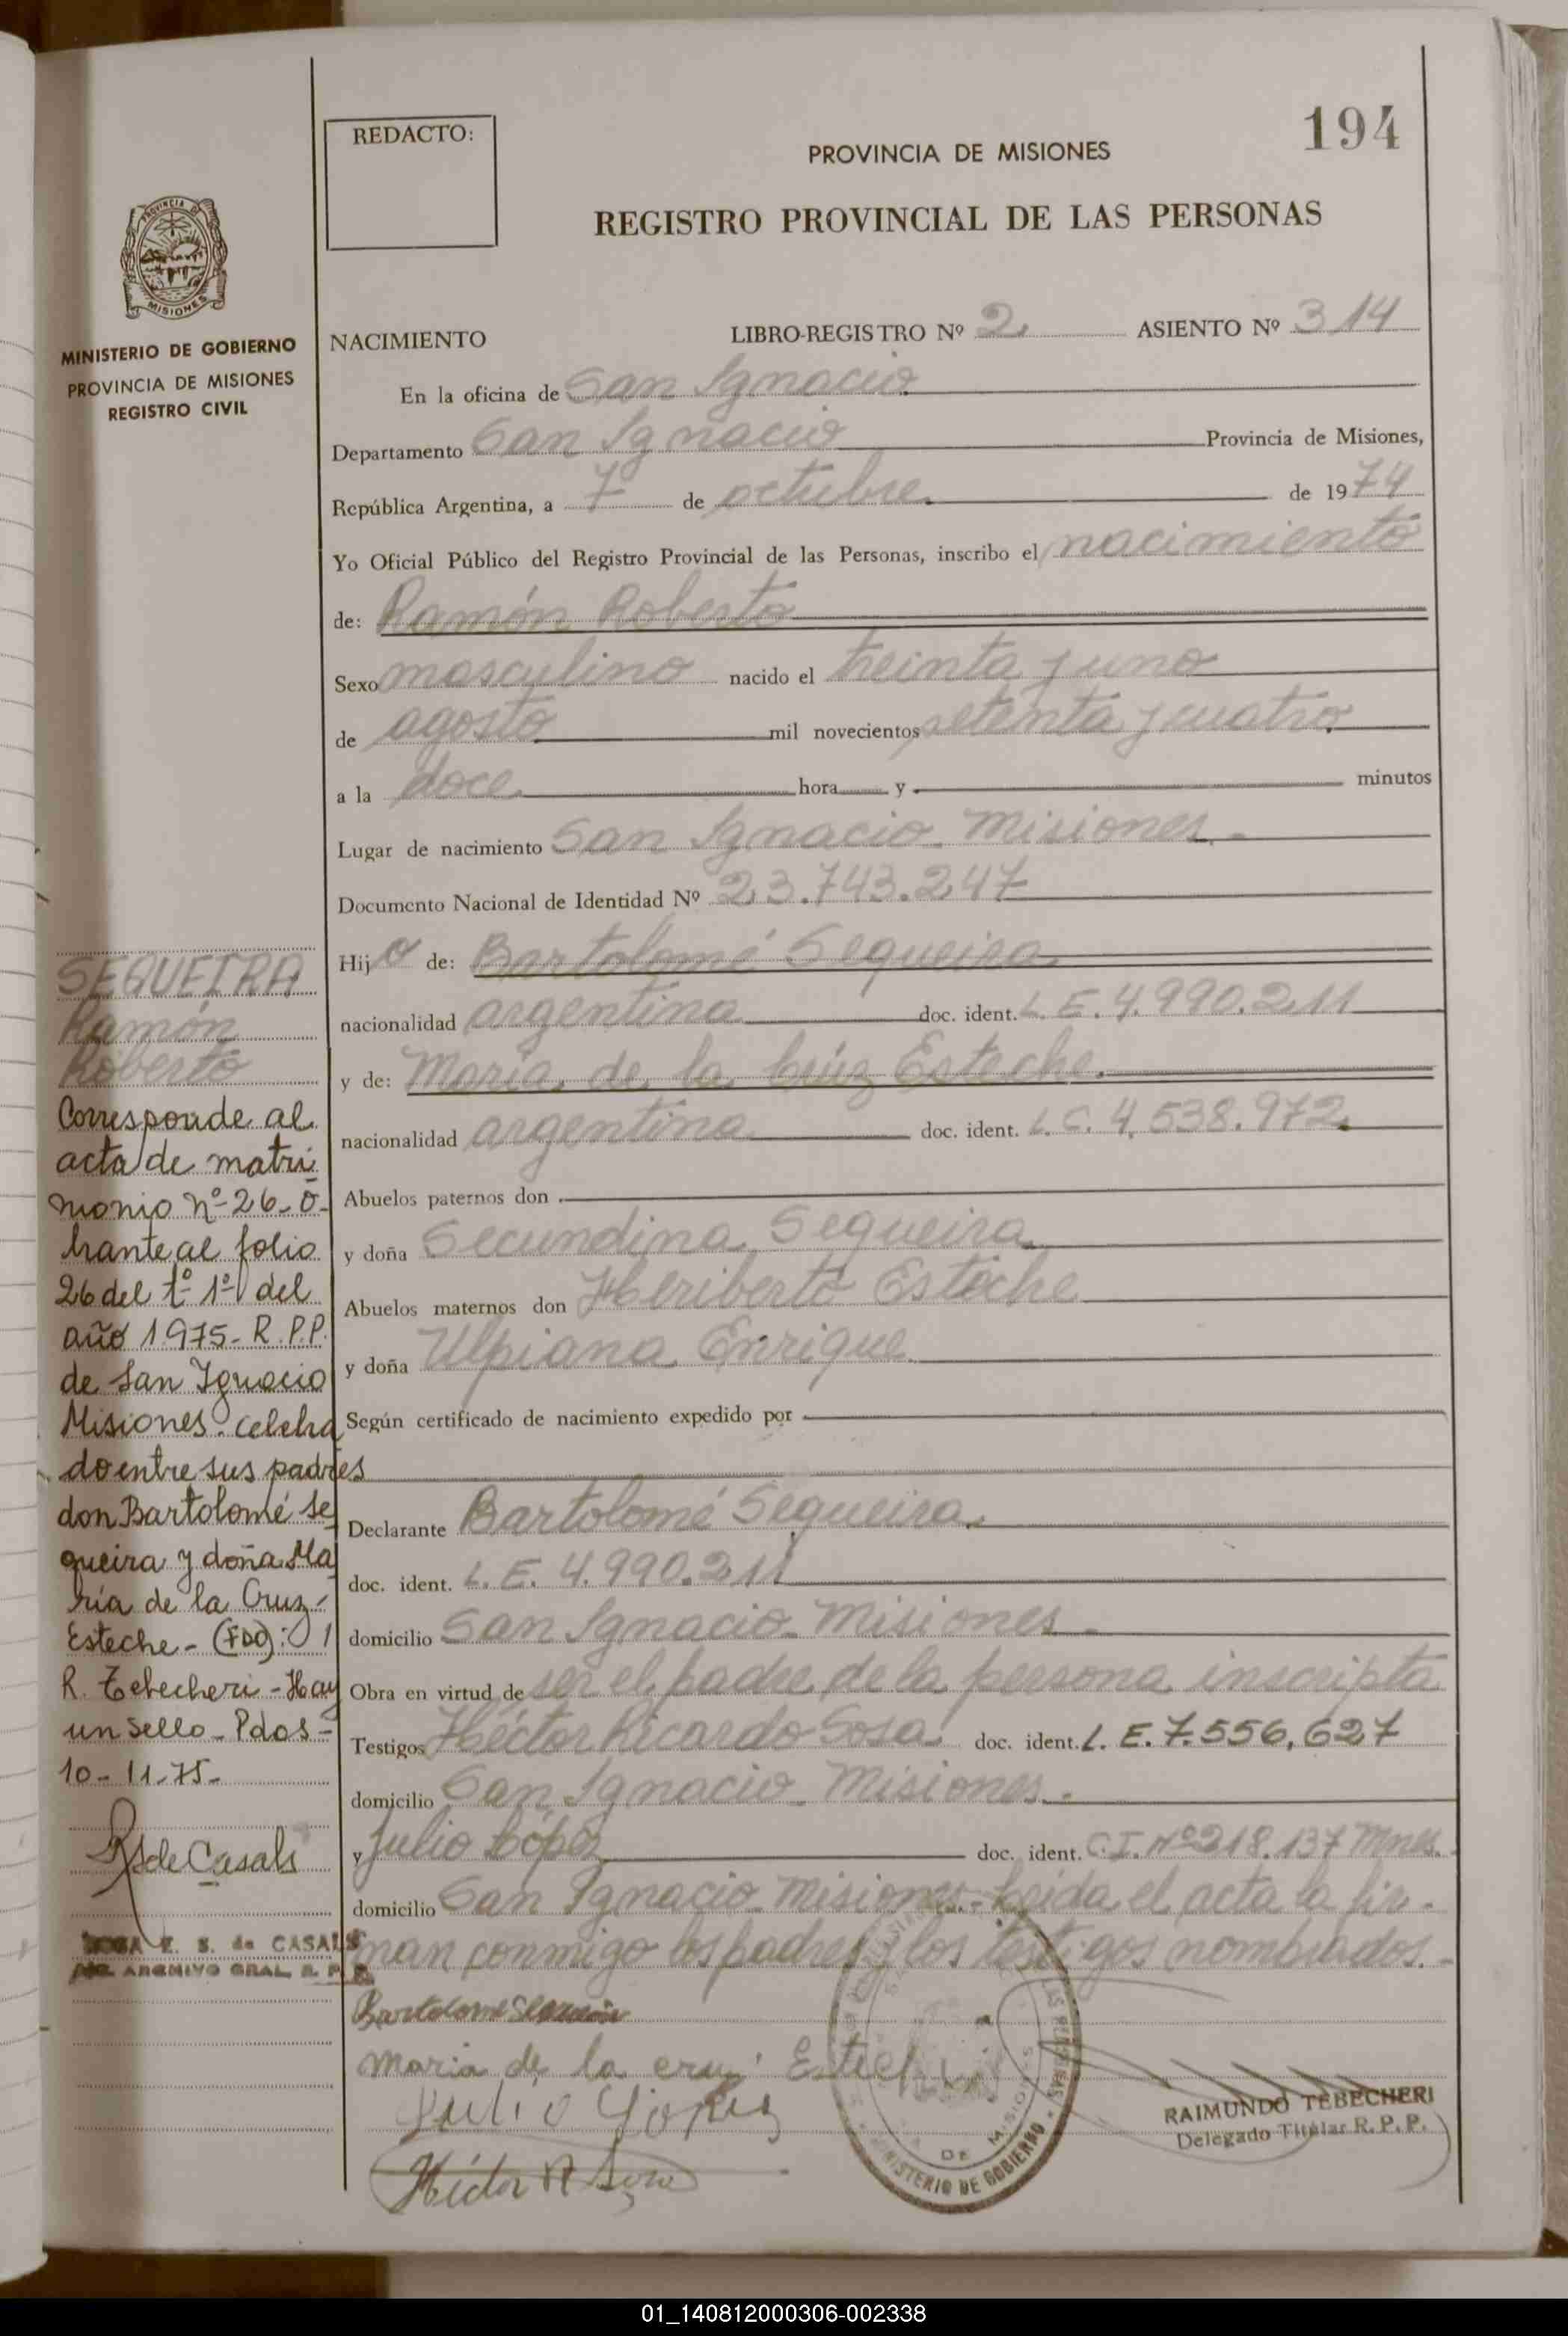 194
REDACTO:
PROVINCIA DE MISIONES
REGISTRO PROVINCIAL DE LAS PERSONAS
PROVINCIA DE
MISIONES
MINISTERIO DE GOBIERNO
PROVINCIA DE MISIONES
REGISTRO CIVIL
NACIMIENTO LIBRO-REGISTRO Nº 2 ASIENTO Nº 314
En la oficina de San Ignacio
Departamento San Ignacio Provincia de Misiones,
República Argentina, a 7 de octubre de 1974
Yo Oficial Público del Registro Provincial de las Personas, inscribo el nacimiento
de: Ramón Roberto
Sexo masculino nacido el treinta y uno
de agosto mil novecientos setenta y cuatro
a la doce hora y minutos
Lugar de nacimiento San Ignacio. Misiones.-
Documento Nacional de Identidad Nº 23.743.247
Hijo de: Bartolomé Sequeira
nacionalidad argentina doc. ident. L. E. 4.990.211
y de: María de la Cruz Esteche.
nacionalidad argentina doc. ident. L. C. 4.538.972
Abuelos paternos don
y doña Secundina Sequeira
Abuelos maternos don Heriberto Esteche
y doña Ulpiana Enrique
Según certificado de nacimiento expedido por
Declarante Bartolomé Sequeira.
doc. ident. L. E. 4.990.211
domicilio San Ignacio. Misiones.
Obra en virtud de ser el padre de la persona inscripta
Testigos Héctor Ricardo Sosa doc. ident. L. E. 7.556,627
domicilio San Ignacio. Misiones.-
y Julio López doc. ident. C.I. Nº 218.137 Mnes.
domicilio San Ignacio. Misiones.- Leida el acta la fir-
man conmigo los padres y los testigos nombrados.-
Bartolome Sequeira
maria de la cruz Esteche
Julio López
Héctor R Sosa
DE MISIONES
MINISTERIO DE GOBIERNO
RAIMUNDO TEBECHERI
Delegado Titular R. P. P.
SEQUEIRA
Ramón
Roberto
Corresponde al
acta de matri
monio nº 26- o-
brante al folio
26 del tº 1º del
año 1975- R.P.P.
de San Ignacio
Misiones. celebra
do entre sus padres
don Bartolomé Se
queira y doña Ma
ría de la Cruz-
Esteche- (FDO):
R. Tebecheri - Hay
un sello - Pdas -
10-11-75-
R S de Casals
ROSA E. S. de CASALS
ARCHIVO GRAL. R. P. P.
01_140812000306-002338